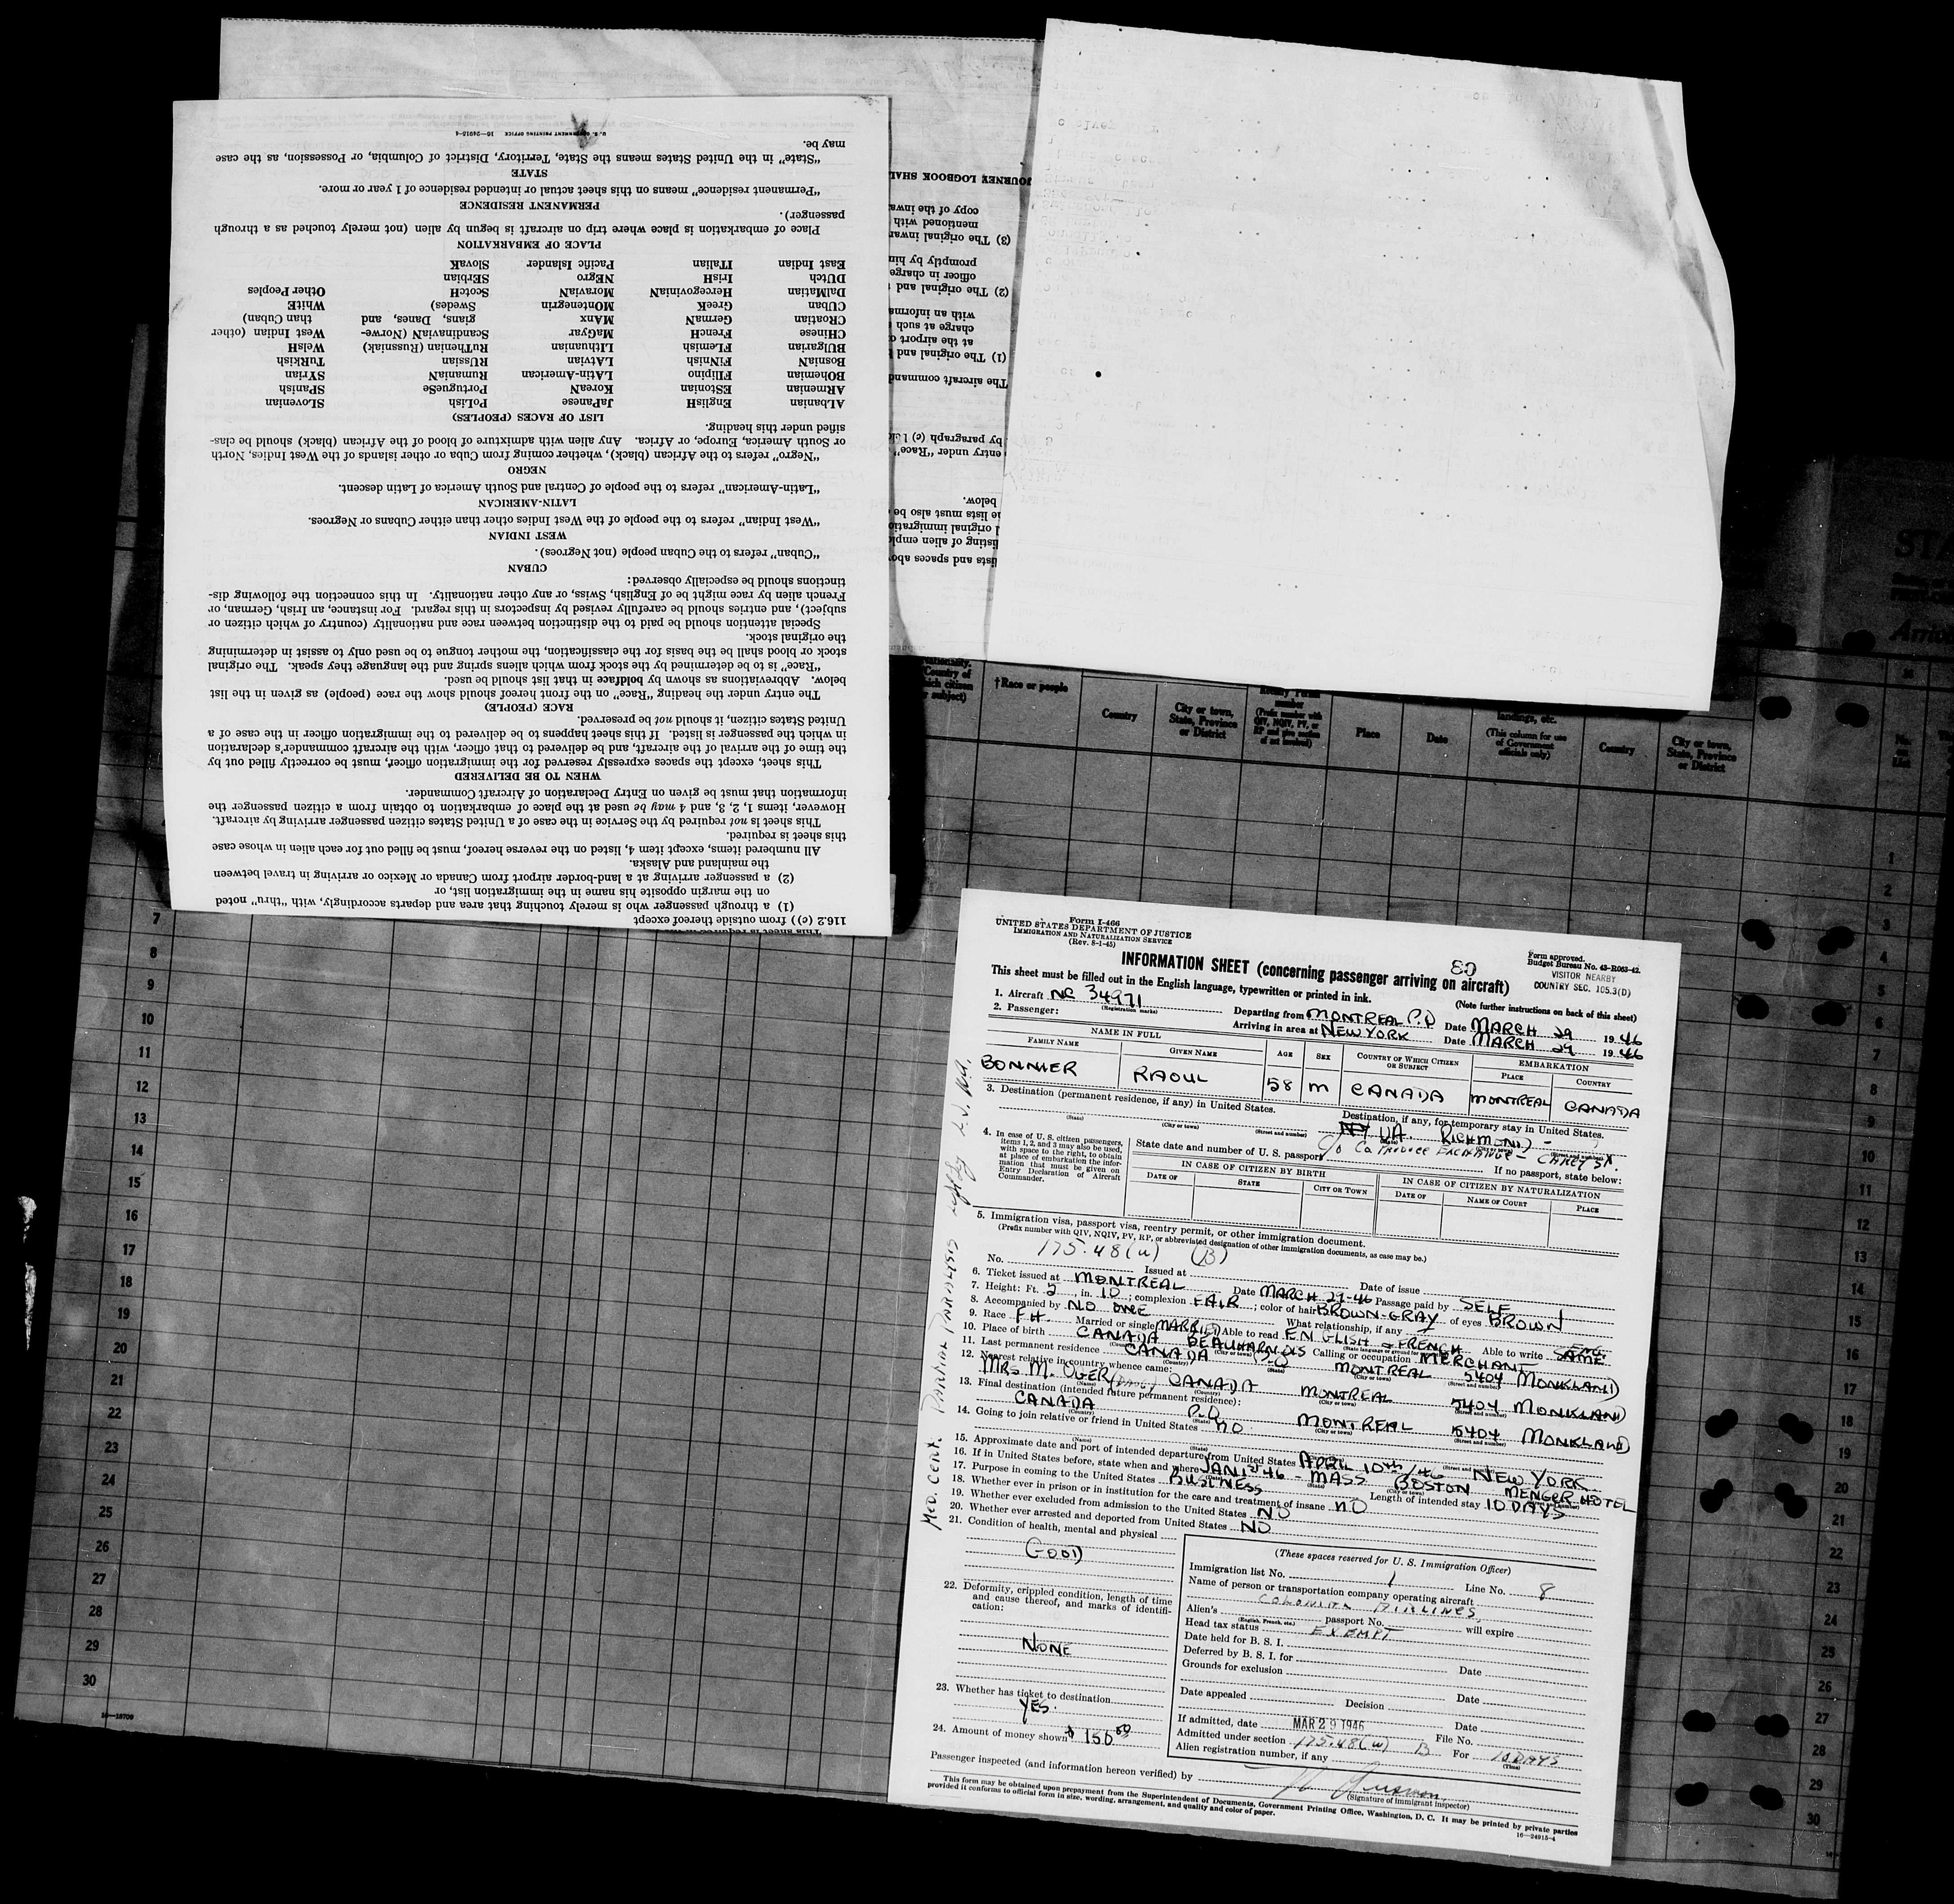 U. S. GOVERNMENT PRINTING OFFICE 16—24915-4
This sheet is required in the
116.2 (c)) from outside thereof except
(1) a through passenger who is merely touching that area and departs accordingly, with "thru" noted
on the margin opposite his name in the immigration list, or
(2) a passenger arriving at a land-border airport from Canada or Mexico or arriving in travel between
the mainland and Alaska.
All numbered items, except item 4, listed on the reverse hereof, must be filled out for each alien in whose case
this sheet is required.
This sheet is not required by the Service in the case of a United States citizen passenger arriving by aircraft.
However, items 1, 2, 3, and 4 may be used at the place of embarkation to obtain from a citizen passenger the
information that must be given on Entry Declaration of Aircraft Commander.
WHEN TO BE DELIVERED
This sheet, except the spaces expressly reserved for the immigration officer, must be correctly filled out by
the time of the arrival of the aircraft, and be delivered to that officer, with the aircraft commander's declaration
in which the passenger is listed. If this sheet happens to be delivered to the immigration officer in the case of a
United States citizen, it should not be preserved.
RACE (PEOPLE)
The entry under the heading "Race" on the front hereof should show the race (people) as given in the list
below. Abbreviations as shown by boldface in that list should be used.
"Race" is to be determined by the stock from which aliens spring and the language they speak. The original
stock or blood shall be the basis for the classification, the mother tongue to be used only to assist in determining
the original stock.
Special attention should be paid to the distinction between race and nationality (country of which citizen or
subject), and entries should be carefully revised by inspectors in this regard. For instance, an Irish, German, or
French alien by race might be of English, Swiss, or any other nationality. In this connection the following dis-
tinctions should be especially observed:
CUBAN
"Cuban" refers to the Cuban people (not Negroes).
WEST INDIAN
"West Indian" refers to the people of the West Indies other than either Cubans or Negroes.
LATIN-AMERICAN
"Latin-American" refers to the people of Central and South America of Latin descent.
NEGRO
"Negro" refers to the African (black), whether coming from Cuba or other islands of the West Indies, North
or South America, Europe, or Africa. Any alien with admixture of blood of the African (black) should be clas-
sified under this heading.
LIST OF RACES (PEOPLES)
ALbanian EnglisH JaPanese PoLish SLovenian
ARMenian EStonian KoreaN PortugueSe SPanish
BOHemian FIlipino LAtin-American RumaniaN SYrian
BosniaN FiNnish LAtvian RUssian TuRkish
BUlgarian FLemish LIthuanian RuThenian (Russniak) WelsH
CHinese FrencH MaGyar ScandinaviaN (Norwe- West Indian (other
CRoatian GermaN MAnx gians, Danes, and than Cuban)
CUban GreeK MOntenegrin Swedes) WhitE
DalMatian HercegoviniaN MoraviaN ScotcH Other Peoples
DUtch IrisH NEgro SErbian
East Indian ITalian Pacific Islander SlovaK
PLACE OF EMBARKATION
Place of embarkation is place where trip on aircraft is begun by alien (not merely touched as a through
passenger).
PERMANENT RESIDENCE
"Permanent residence" means on this sheet actual or intended residence of 1 year or more.
STATE
"State" in the United States means the State, Territory, District of Columbia, or Possession, as the case
may be.
JOURNEY LOGBOOK SHAL
copy of the inwar
mentioned with
(3) The original inwar
promptly by him
officer in charge
(2) The original and
with an informa
charge at such
at the airport o
(1) The original and
The aircraft command
by paragraph (c)
entry under "Race"
below.
e lists must also be
l original immigratio
listing of alien emplo
ists and spaces abov
†Race or people
Country
City or town, State, Province or District
Place
Date
(This column for use of Government officials only)
Country
City or town, State, Province or District
Form I-466
UNITED STATES DEPARTMENT OF JUSTICE
IMMIGRATION AND NATURALIZATION SERVICE
(Rev. 8-1-45)
Form approved.
Budget Bureau No. 43-R063-42.
VISITOR NEARBY
COUNTRY SEC. 105.3(D)
80
INFORMATION SHEET (concerning passenger arriving on aircraft)
This sheet must be filled out in the English language, typewritten or printed in ink.
(Note further instructions on back of this sheet)
1. Aircraft NC 34971 (Registration marks) Departing from MONTREAL P.Q Date MARCH 29 1946
2. Passenger: Arriving in area at NEW YORK Date MARCH 29 1946
NAME IN FULL AGE SEX COUNTRY OF WHICH CITIZEN OR SUBJECT EMBARKATION
FAMILY NAME GIVEN NAME PLACE COUNTRY
BONNIER RAOUL 58 M CANADA MONTREAL CANADA
3. Destination (permanent residence, if any) in United States. Destination, if any, for temporary stay in United States.
(State) (City or town) (Street and number) VA. RICHMOND -
c/o Ca PRODUCE EXCHANGE - CAREY ST.
4. In case of U. S. citizen passengers, items 1, 2, and 3 may also be used, with space to the right, to obtain at place of embarkation the information that must be given on Entry Declaration of Aircraft Commander.
State date and number of U. S. passport If no passport, state below:
IN CASE OF CITIZEN BY BIRTH IN CASE OF CITIZEN BY NATURALIZATION
DATE OF STATE CITY OR TOWN DATE OF NAME OF COURT PLACE
5. Immigration visa, passport visa, reentry permit, or other immigration document.
(Prefix number with QIV, NQIV, PV, RP, or abbreviated designation of other immigration documents, as case may be.)
175.48(u) (B)
No. Issued at Date of issue
6. Ticket issued at MONTREAL Date MARCH 27-46 Passage paid by SELF
7. Height: Ft. 5, in. 10; complexion FAIR; color of hair BROWN-GRAY of eyes BROWN
8. Accompanied by NO ONE What relationship, if any
9. Race FH. Married or single MARRIED Able to read ENGLISH & FRENCH Able to write SAME
10. Place of birth CANADA BEAUHARNOIS Calling or occupation MERCHANT
11. Last permanent residence CANADA P.Q MONTREAL 5404 MONKLAND
12. Nearest relative in country whence came:
MRS M. OGER CANADA MONTREAL 5404 MONKLAND
13. Final destination (intended future permanent residence):
CANADA P.Q MONTREAL 5404 MONKLAND
14. Going to join relative or friend in United States NO
15. Approximate date and port of intended departure from United States APRIL 10th/46 NEW YORK
16. If in United States before, state when and where JAN 1st 46 - MASS BOSTON MENGER HOTEL
17. Purpose in coming to the United States BUSINESS Length of intended stay 10 DAYS
18. Whether ever in prison or in institution for the care and treatment of insane NO
19. Whether ever excluded from admission to the United States NO
20. Whether ever arrested and deported from United States NO
21. Condition of health, mental and physical
GOOD
22. Deformity, crippled condition, length of time and cause thereof, and marks of identification:
NONE
23. Whether has ticket to destination
YES.
24. Amount of money shown $150 00
(These spaces reserved for U. S. Immigration Officer)
Immigration list No. 1 Line No. 8
Name of person or transportation company operating aircraft
COLONIAL AIRLINES
Alien's (English, French, etc.) passport No. will expire
Head tax status EXEMPT
Date held for B. S. I.
Deferred by B. S. I. for
Grounds for exclusion Date
Date appealed Decision Date
If admitted, date MAR 29 1946 Date
Admitted under section 175.48(u) B File No. For 10 DAYS (Time)
Alien registration number, if any
Passenger inspected (and information hereon verified) by
(Signature of immigrant inspector)
This form may be obtained upon prepayment from the Superintendent of Documents, Government Printing Office, Washington, D. C. It may be printed by private parties
provided it conforms to official form in size, wording, arrangement, and quality and color of paper.
16—24915-4
MED. CERT. PARTIAL PARALYSIS
7
8
9
10
11
12
13
14
15
16
17
18
19
20
21
22
23
24
25
26
27
28
29
30
16—18709
1
2
3
4
5
6
7
8
9
10
11
12
13
14
15
16
17
18
19
20
21
22
23
24
25
26
27
28
29
30